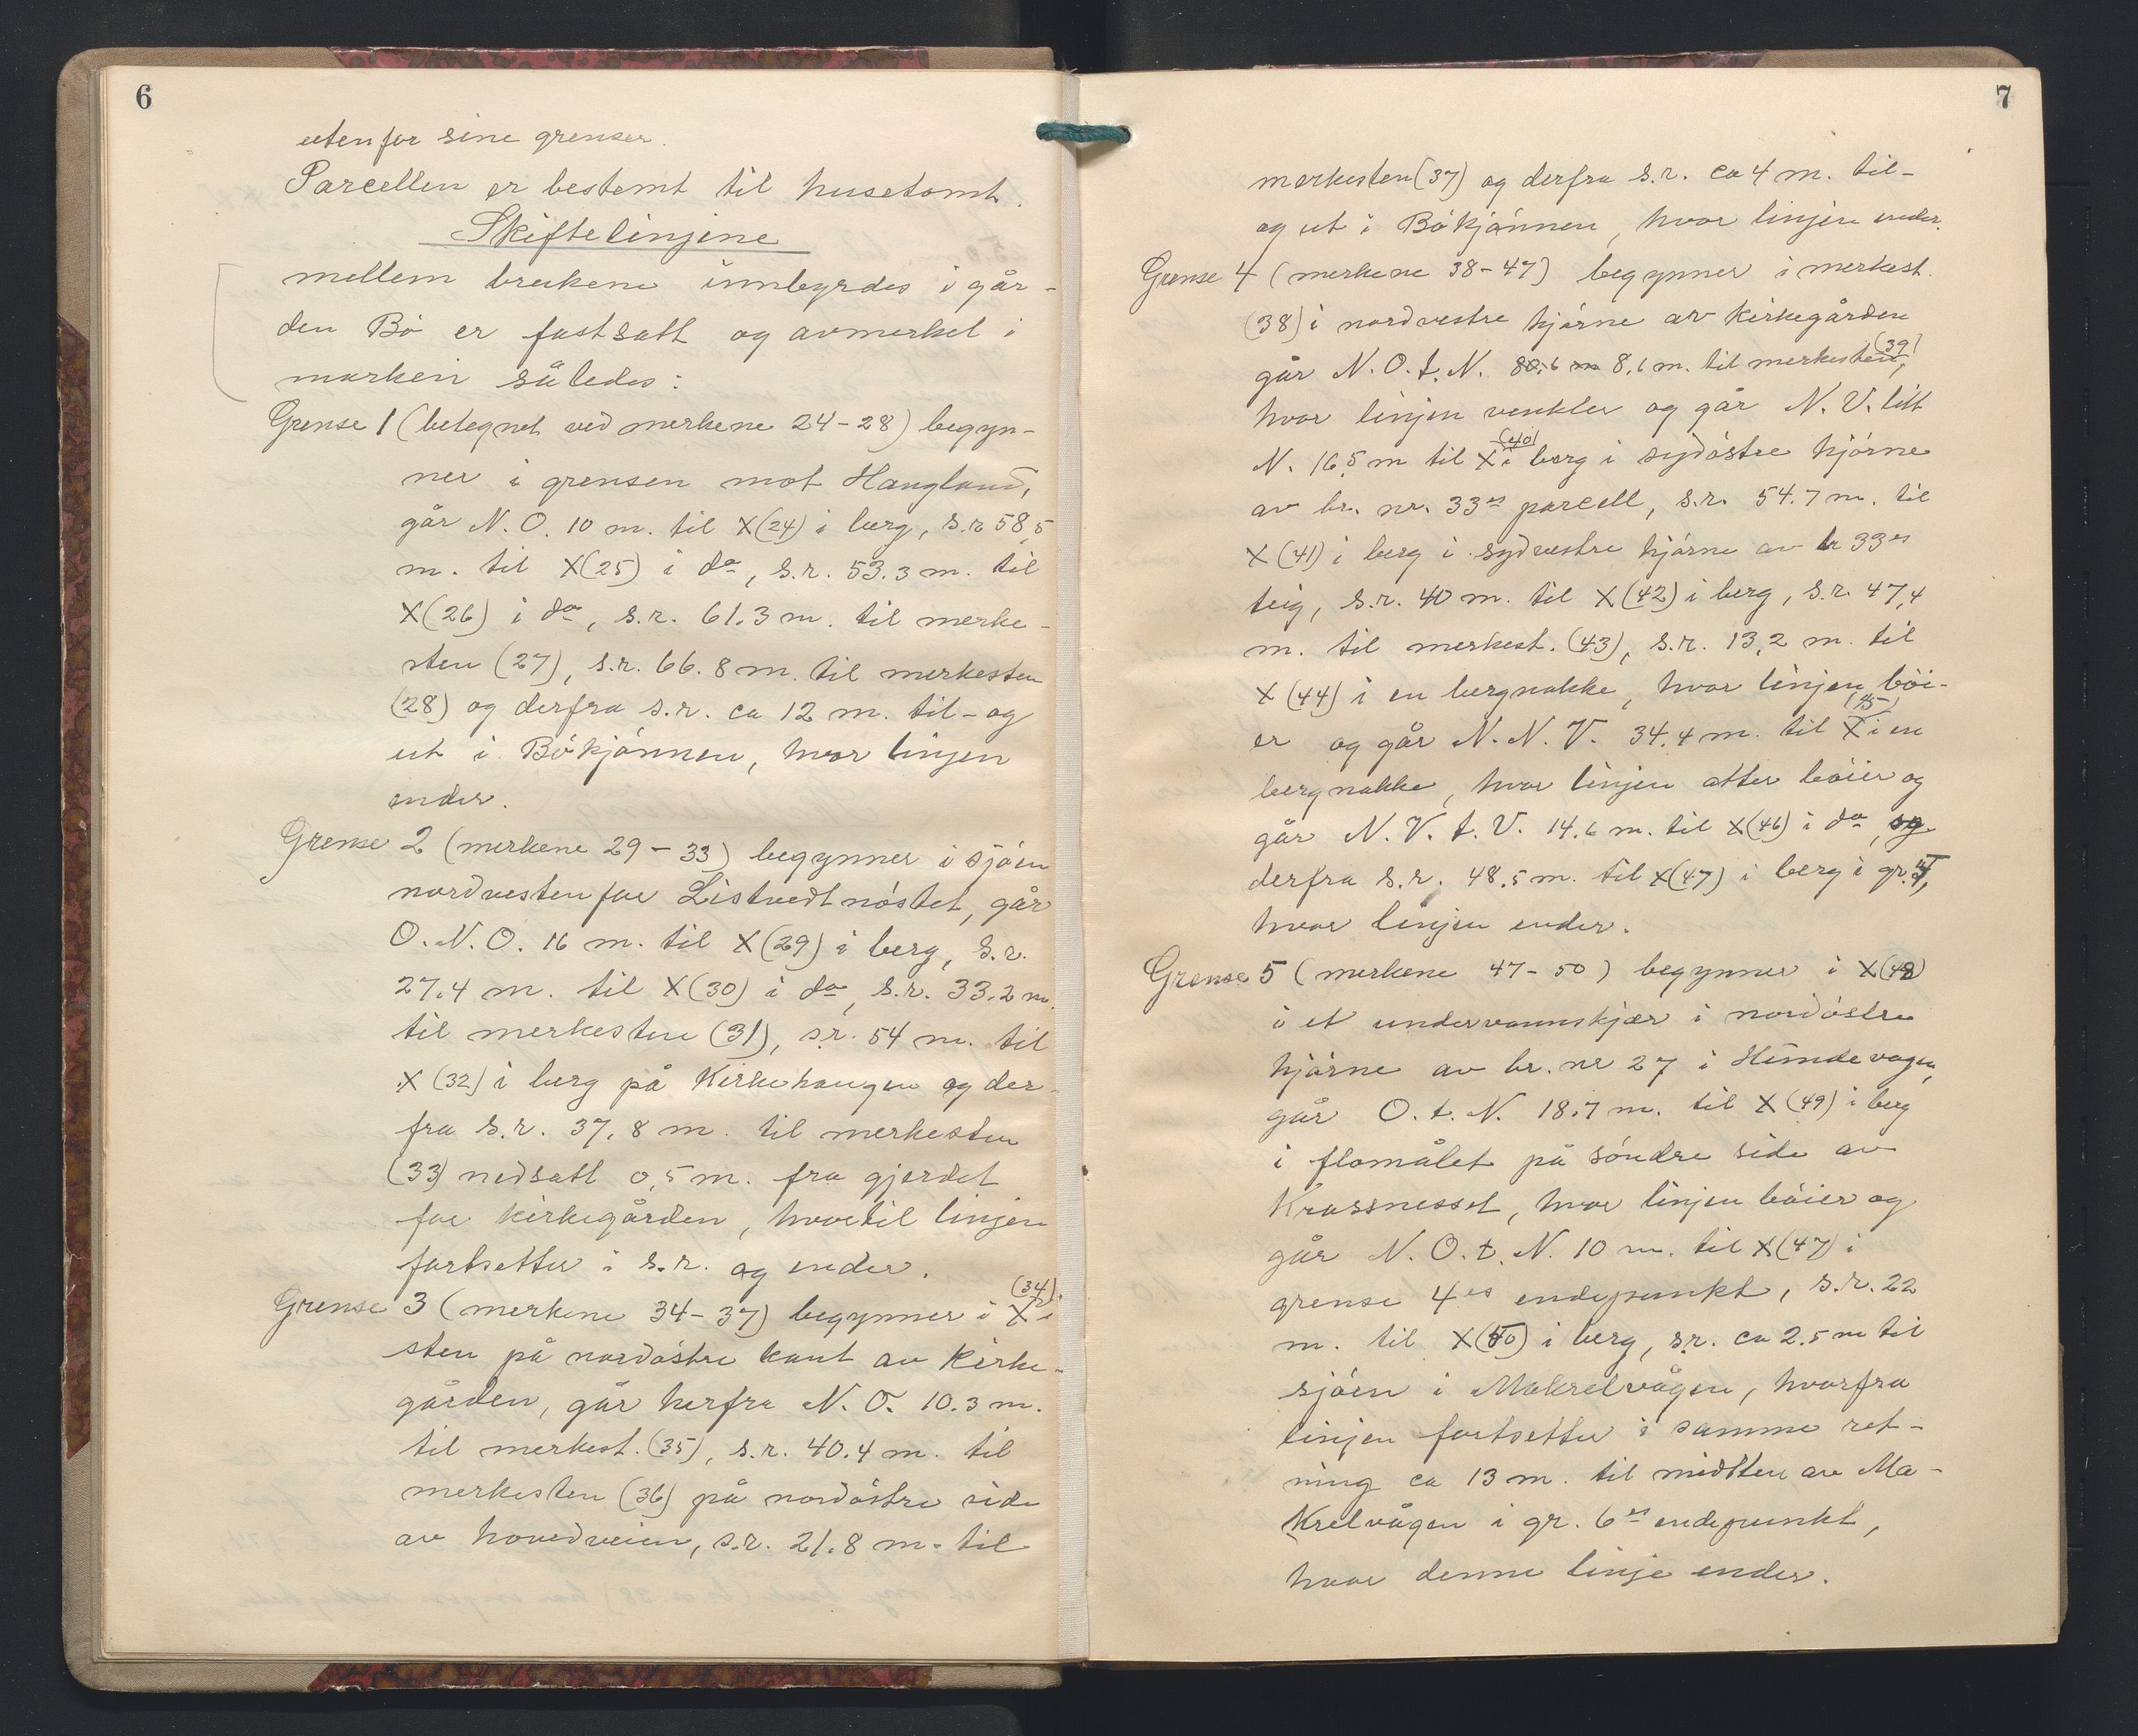 6
utenfor sine grenser.
Parcellen er bestemt til husetomt.
Skiftelinjene
mellem brukene innbyrdes i går-
den Bö er fastsatt og avmerket i
marken således:
Grense 1 (betegnet ved merkene 24-28) begyn-
ner i grensen mot Haugland,
går N.O. 10 m. til X(24) i berg, s.r. 58,5
m. til X(25) i do, s.r. 53.3 m. til
X(26) i do, s.r. 61.3 m. til merke-
sten (27), s.r. 66.8 m. til merkesten
(28) og derfra s.r. ca 12 m. til- og
ut i Bökjönnen, hvor linjen
ender.
Grense 2 (merkene 29-33) begynner i sjöen
nordvestenfor Listvedtnöstet, går
O.N.O. 16 m. til X(29) i berg, s.r.
27.4 m. til X(30) i do, s.r. 33.2 m.
til merkesten (31), s.r. 54 m. til
X(32) i berg på Kirkehaugen og der-
fra s.r. 37,8 m. til merkesten
(33) nedsatt 0,5 m. fra gjerdet
for kirkegården, hvortil linjen
fortsetter i s.r. og ender.
Grense 3 (merkene 34-37) begynner i X(34) i
sten på nordöstre kant av kirke-
gården, går herfra N.O. 10.3 m.
til merkest. (35), s.r. 40.4 m. til
merkesten (36) på nordöstre side
av hovedveien, s.r. 21.8 m. til
7
merkesten (37) og derfra s.r. ca 4 m. til-
og ut i Bökjönnen, hvor linjen ender.
Grense 4 (merkene 38-47) begynner i merkest.
(38) i nordvestre hjörne av kirkegården
går N.O.t.N. 80.6 m 8,6 m. til merkesten (39),
hvor linjen vinkler og går N.V. litt
N. 16,5 m til X(40) i berg i sydöstre hjörne
av br. nr. 33es parcell, s.r. 54.7 m. til
X(41) i berg i sydvestre hjörne av br 33es
teig, s.r. 40 m. til X(42) i berg, s.r. 47,4
m. til merkest. (43), s.r. 13,2 m. til
X(44) i en bergnakke, hvor linjen böi-
er og går N.N.V. 34.4 m. til X(45) i en
bergnakke, hvor linjen atter böier og
går N.V.t.V. 14.6 m. til X(46) i do, og
derfra s.r. 48.5 m. til X(47) i berg i gr. 5,
hvor linjen ender.
Grense 5 (merkene 47-50) begynner i X(48)
i et undervannskjær i nordöstre
hjörne av br. nr 27 i Hundevagen,
går O.t.N. 18.7 m. til X(49) i berg
i flomålet på söndre side av
Krossnesset, hvor linjen böier og
går N.O.t.N. 10 m. til X(47) i
grense 4es endepunkt, s.r. 22
m. til X(50) i berg, s.r. ca 2.5 m til
sjöen i Makrelvågen, hvorfra
linjen fortsetter i samme ret-
ning ca 13 m. til midtten av Ma-
krelvågen i gr. 6es endepunkt,
hvor denne linje ender.